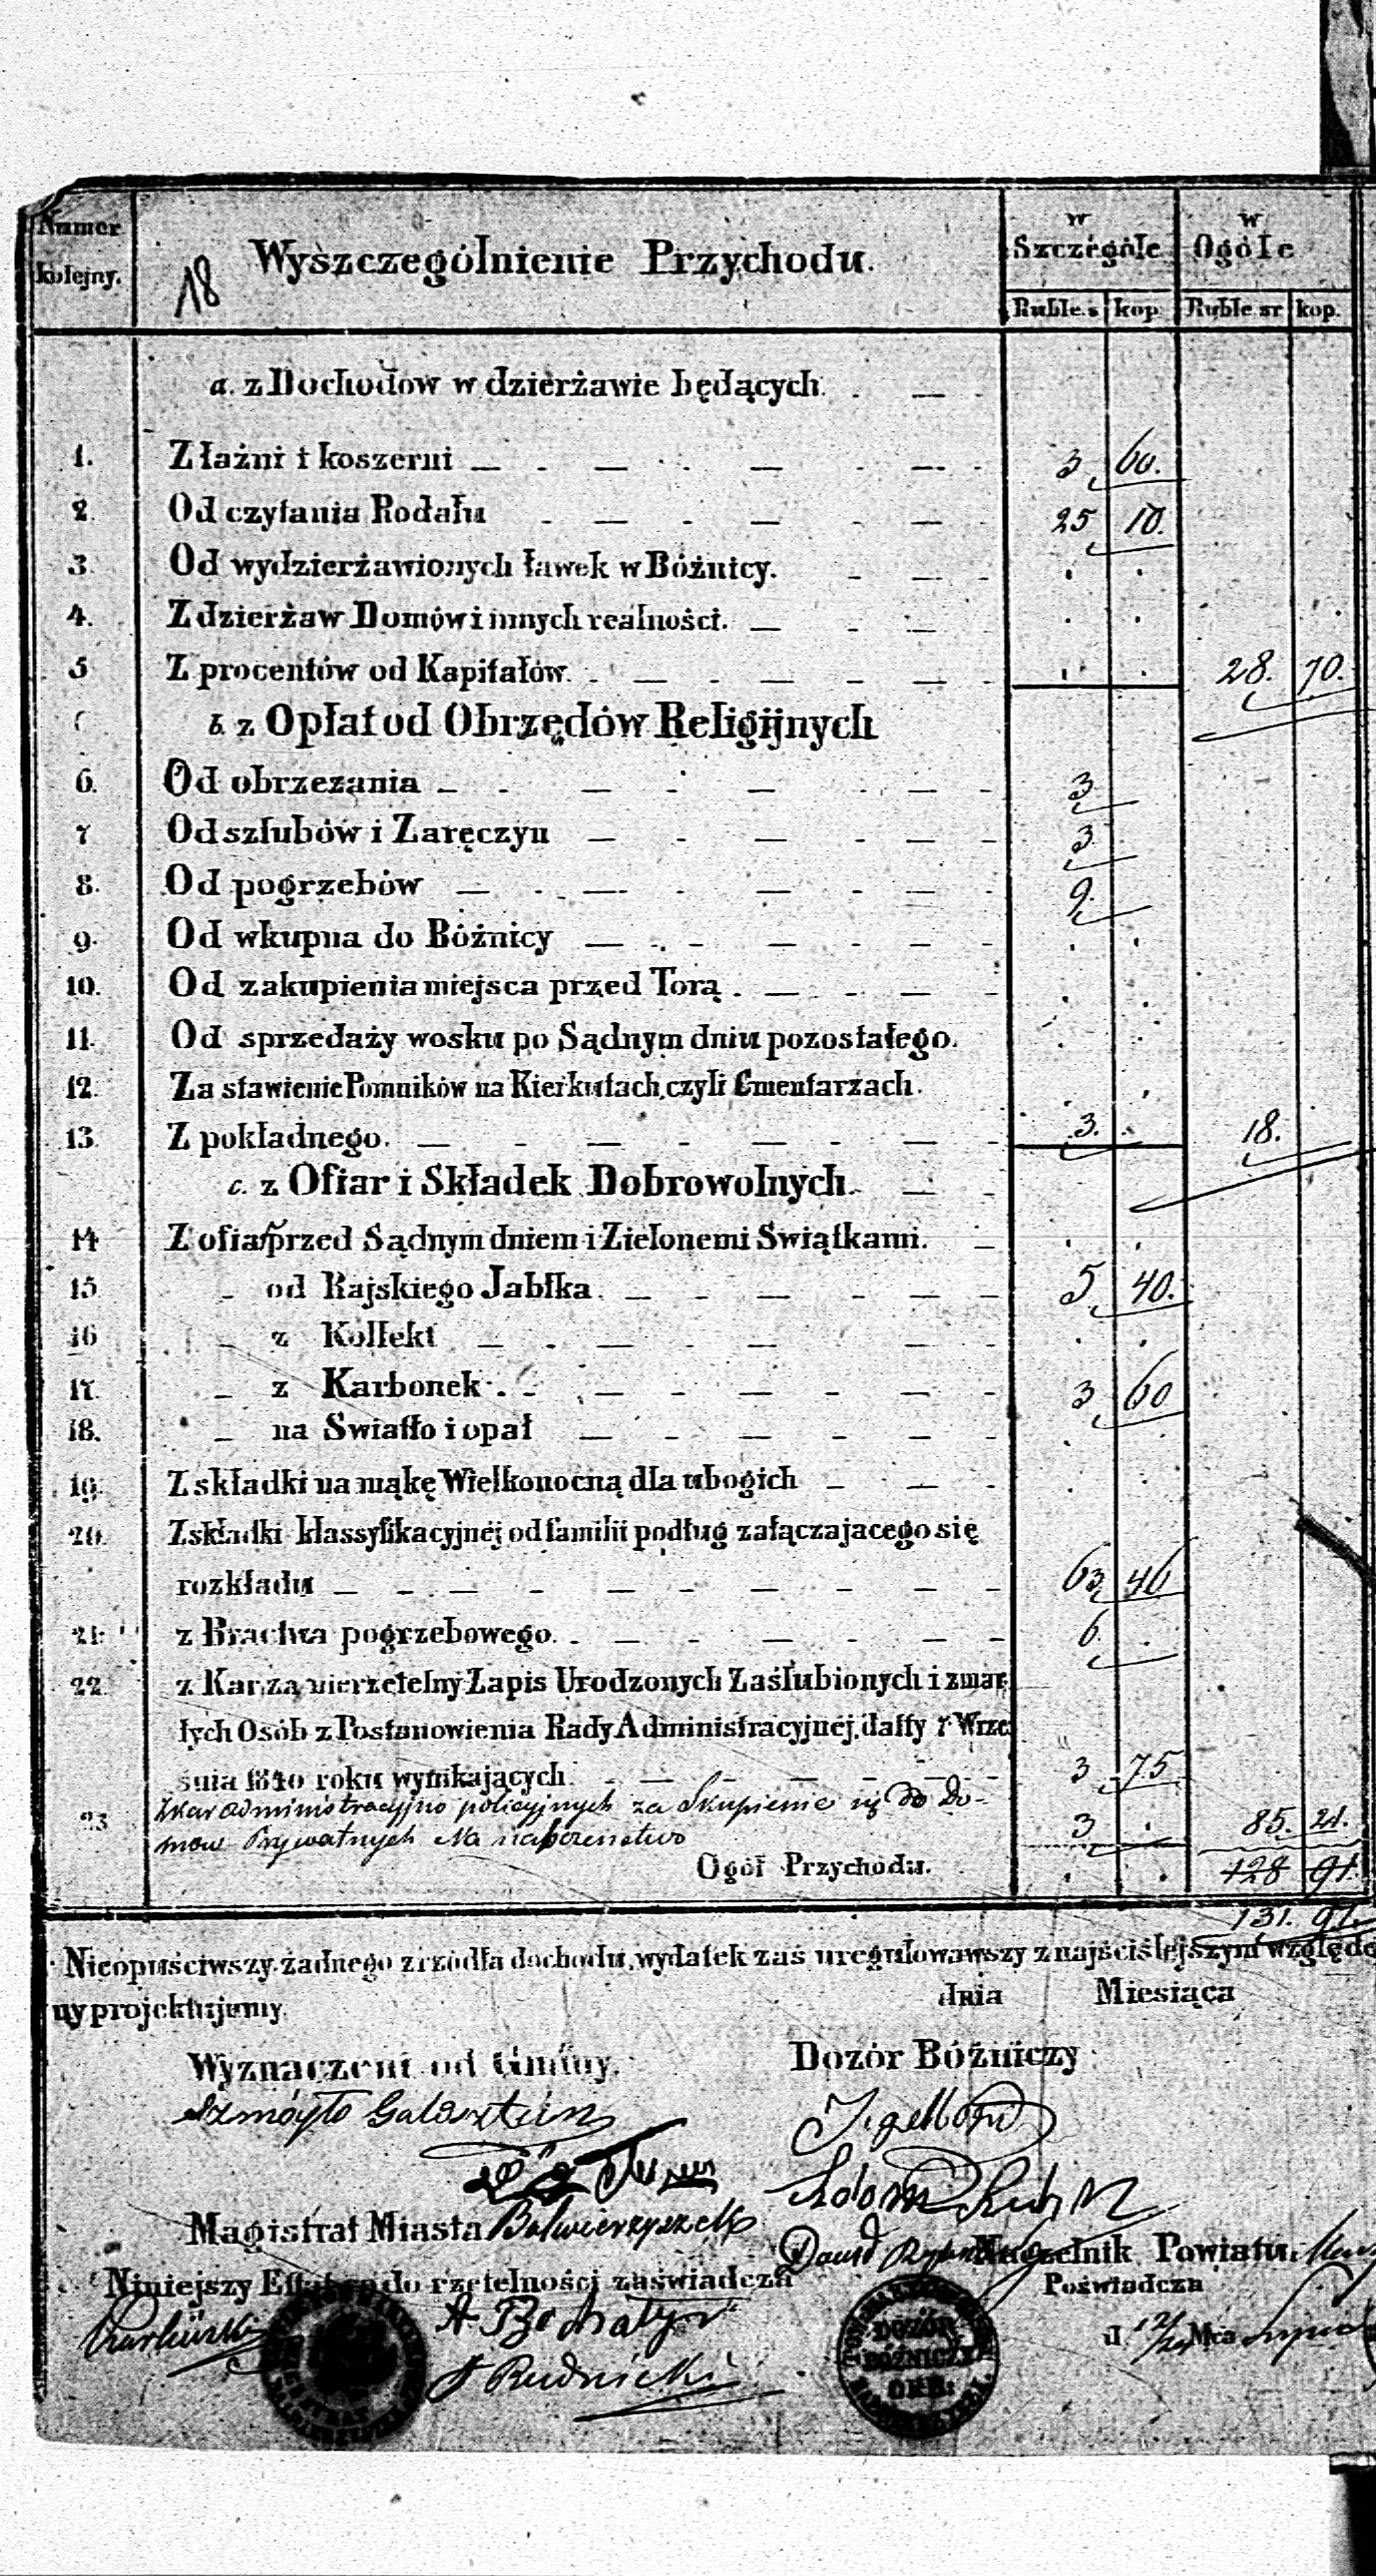 Numer kolejny.
18 Wyszczególnienie Przychodu.
w Szczególe
w Ogóle
Ruble s kop Ruble sr kop.
a. z Dochodów w dzierżawie będących.
1. Z łaźni i koszerni 3 60.
2. Od czytania Rodału 25 10.
3. Od wydzierżawionych ławek w Bóżnicy.
4. Z dzierżaw Domów i innych realności.
5 Z procentów od Kapitałów. 28. 70.
b. z Opłat od Obrzędów Religijnych
6. Od obrzezania 3
7 Od szlubów i Zaręczyn 3
8. Od pogrzebów 9.
9. Od wkupna do Bóżnicy
10. Od zakupienia miejsca przed Torą.
11. Od sprzedaży wosku po Sądnym dniu pozostałego.
12. Za stawienie Pomników na Kierkutach, czyli Cmentarzach.
13. Z pokładnego. 3. 18.
c. z Ofiar i Składek Dobrowolnych.
14 Z ofiar przed Sądnym dniem i Zielonemi Swiątkami.
15 od Rajskiego Jabłka. 5 40.
16 z Kollekt
17. z Karbonek. 3 60
18. na Swiatło i opał
19. Z składki na mąkę Wielkonocną dla ubogich
20. Z składki klassyfikacyjnéj od familii podług załączajacego się
rozkładu 63 46
21. z Bractwa pogrzebowego. 6
22 z Kar za nierzetelny Zapis Urodzonych Zaślubionych i zmar
łych Osób z Postanowienia Rady Administracyjnéj, datty 7 Wrze
śnia 1840 roku wynikających. 3 75
23 Z kar administracyjno policyjnych za Skupienie się do Do-
mow Prywatnych Na nabożenstwo 3 85. 21.
Ogół Przychodu. 128 91.
131. 91.
Nieopuściwszy żadnego z rzódła dochodu, wydatek zaś uregulowawszy z najściślejszym względe
ny projektujemy.
dnia Miesiąca
Wyznaczeni od Gminy.
Dozór Bóżniczy
Magistrat Miasta Balwierzyszek
Naczelnik Powiatu
Niniejszy Ettat co do rzetelności zaświadcza
Poświadcza
d. 12/24 Mca
Rudnicki
DOZÓR
BÓŻNICZY
OKR: